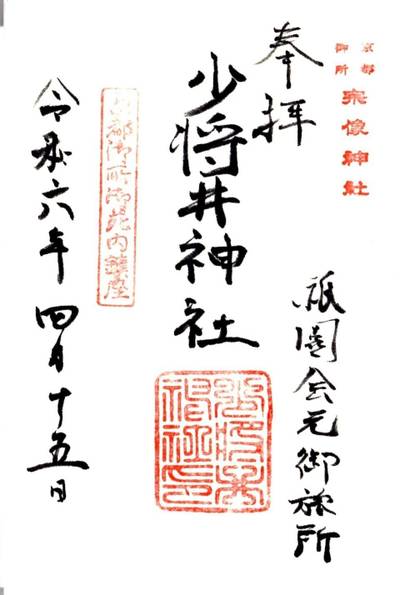 京都
御所
宗像神社
奉拝
祇園会元御旅所
少将井神社
京都御所御苑内鎮座
令和六年四月十五日